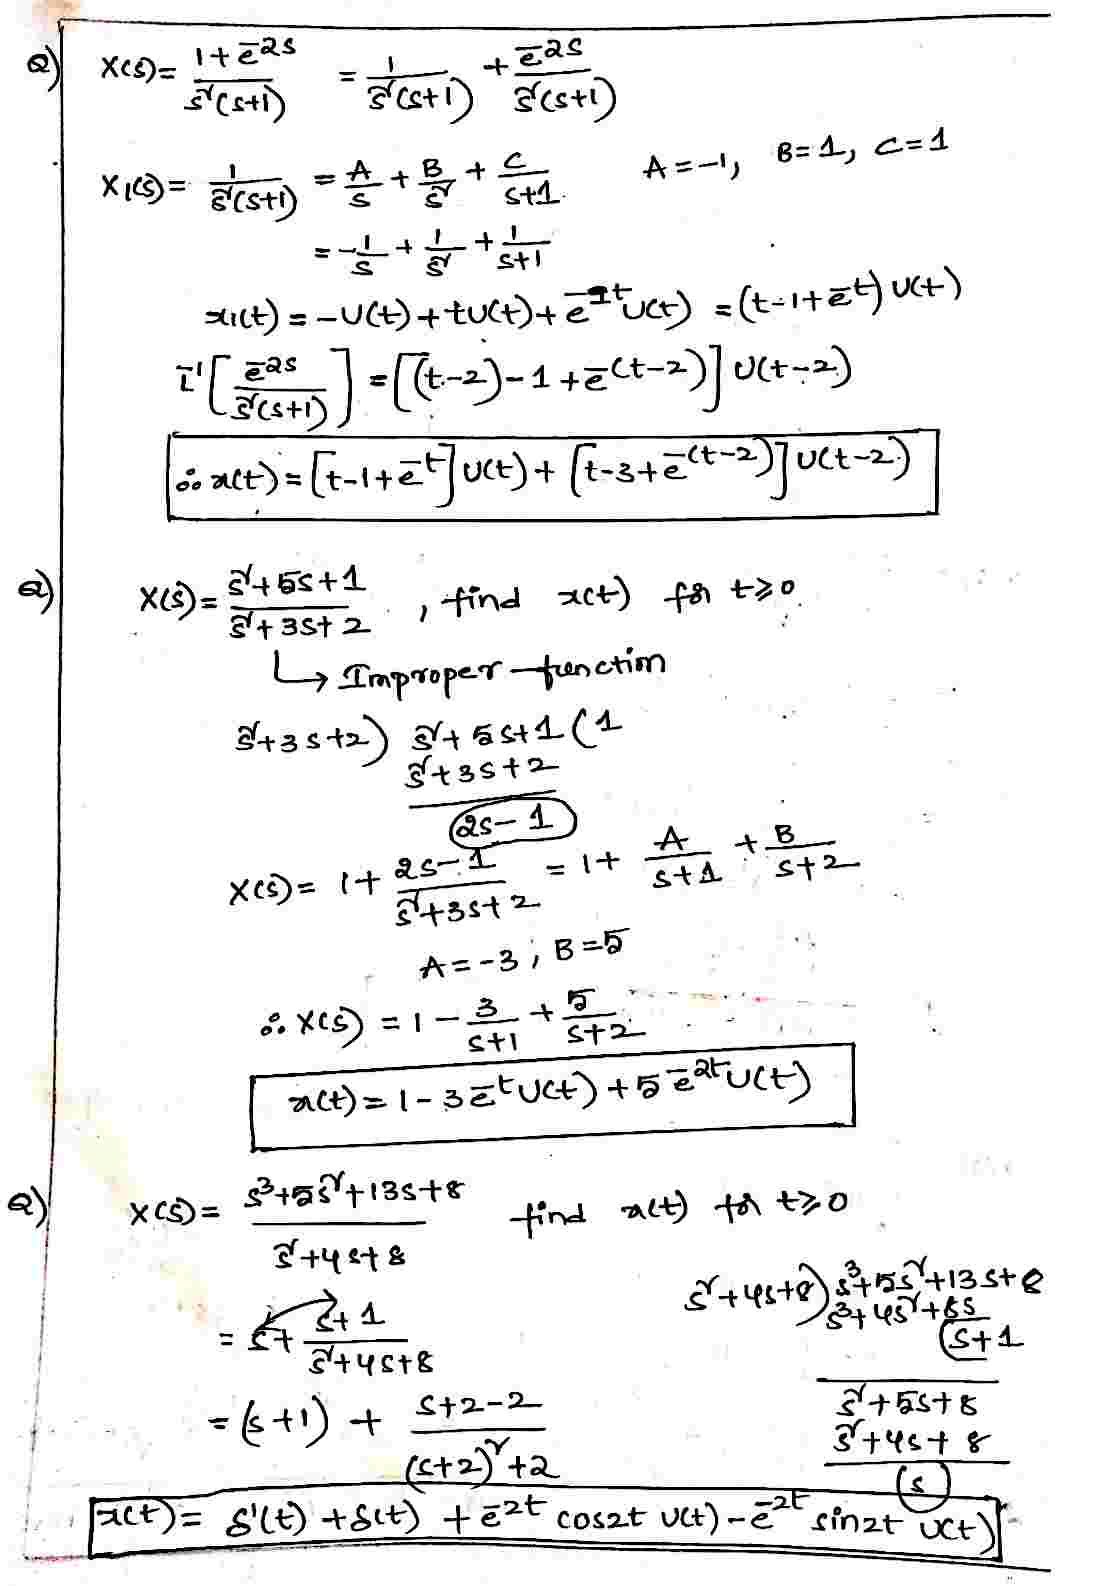 Q) X(s) = (1+e^-2s)/(s²(s+1)) = 1/(s²(s+1)) + e^-2s/(s²(s+1))
X₁(s) = 1/(s²(s+1)) = A/s + B/s² + C/(s+1)   A=-1, B=1, C=1
= -1/s + 1/s² + 1/(s+1)
x₁(t) = -U(t) + tU(t) + e^-1t U(t) = (t-1+e^-t) U(t)
L^-1 [e^-2s/(s²(s+1))] = [(t-2)-1+e^-(t-2)] U(t-2)
∴ x(t) = [t-1+e^-t] U(t) + [t-3+e^-(t-2)] U(t-2)
Q) X(s) = (s²+5s+1)/(s²+3s+2) , find x(t) for t≥0
↳ Improper function
s²+3s+2) s²+5s+1 (1
s²+3s+2
2s-1
X(s) = 1 + (2s-1)/(s²+3s+2) = 1 + A/(s+1) + B/(s+2)
A=-3, B=5
∴ X(s) = 1 - 3/(s+1) + 5/(s+2)
x(t) = 1 - 3e^-t U(t) + 5e^-2t U(t)
Q) X(s) = (s³+5s²+13s+8)/(s²+4s+8) find x(t) for t≥0
= s + (s+1)/(s²+4s+8)
= (s+1) + (s+2-2)/((s+2)²+2
s²+4s+8) s³+5s²+13s+8
s³+4s²+8s
(s+1
s²+5s+8
s²+4s+8
(s)
x(t) = δ'(t) + δ(t) + e^-2t cos2t U(t) - e^-2t sin2t U(t)